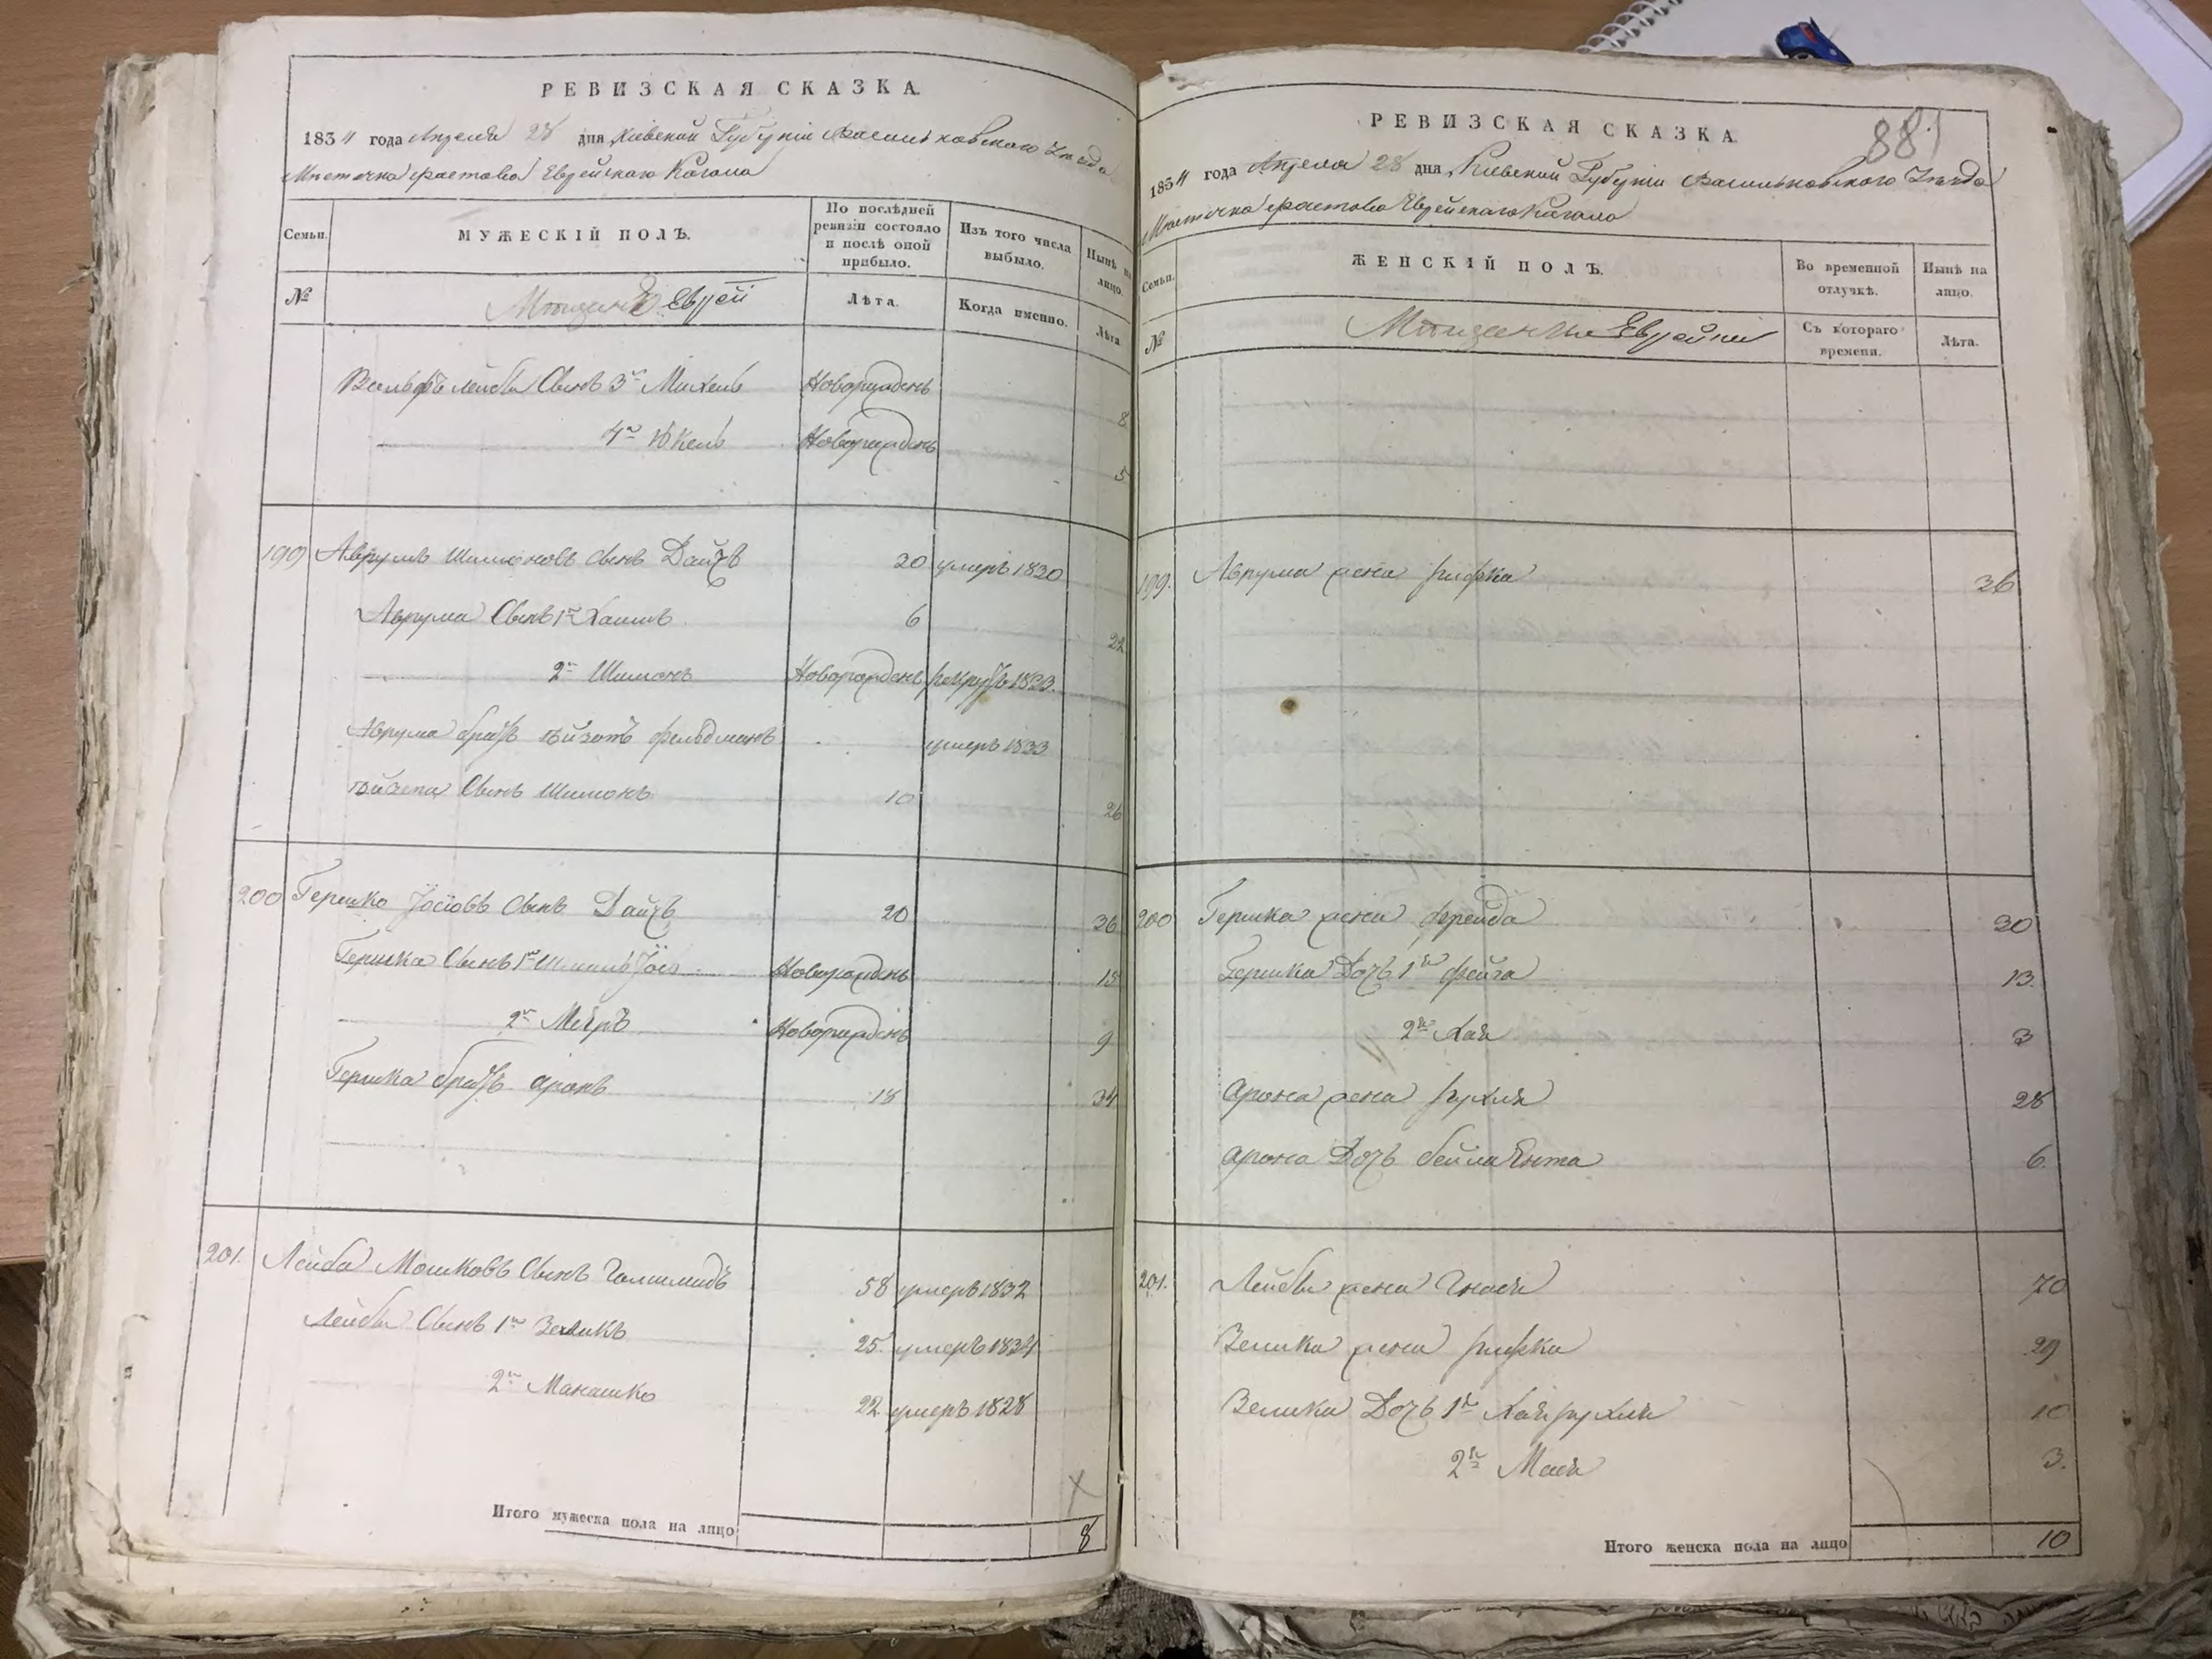 РЕВИЗСКАЯ СКАЗКА.
1834 года Апреля 28 дня Кіевской Губерніи Васильковского Уезда
Местечка Фастова Еврейскаго Кагала
Семьи.
МУЖЕСКІЙ ПОЛЪ.
По послѣдней ревизіи состояло и послѣ оной прибыло.
Изъ того числа выбыло.
Нынѣ на лицо.
№
Мещане Евреи
Лѣта.
Когда именно.
Лѣта
Вольфъ Лейбы Сынъ 3й Михель Новорожденъ 8
4й Юкель Новорожденъ 5
199 Аврумъ Шимоновъ Сынъ Дайчъ 20 умеръ 1830
Аврума Сынъ 1й Хаимъ 6 22
2й Шимонъ Новорожденъ рекрутъ 1823.
Аврума братъ Фельдманъ умеръ 1833
Сынъ Шимонъ 10 26
200 Гершко Іосіовъ Сынъ Дайчъ 20 36
Гершка Сынъ 1й Іос Новорожденъ 15
2й Мееръ Новорожденъ 9
Гершка братъ Аронъ 18 34
201. Лейба Мошковъ Сынъ 58 умеръ 1832
Лейбы Сынъ 1й Зеликъ 25. умеръ 1834
2й Манашко 22 умеръ 1828
Х
Итого мужеска пола на лицо 8
881
РЕВИЗСКАЯ СКАЗКА.
1834 года Апреля 28 дня Кіевской Губерніи Васильковского Уезда
Местечка Фастова Еврейскаго Кагала
Семьи.
ЖЕНСКІЙ ПОЛЪ.
Во временной отлучкѣ.
Нынѣ на лицо.
№
Мещанки Еврейки
Съ котораго времени.
Лѣта.
199. Аврума жена Рифка 36
200 Гершка жена Фрейда 30
Гершка Дочь 1я Фейга 13.
2я Хая 3
Арона жена Рухля 28
Арона Дочь Бейла Ента 6.
201. Лейбы жена Гнася 70
Зелика жена Рифка 29
Зелика Дочь 1я Хая Рухля 10
2я Мася 3.
Итого женска пола на лицо 10